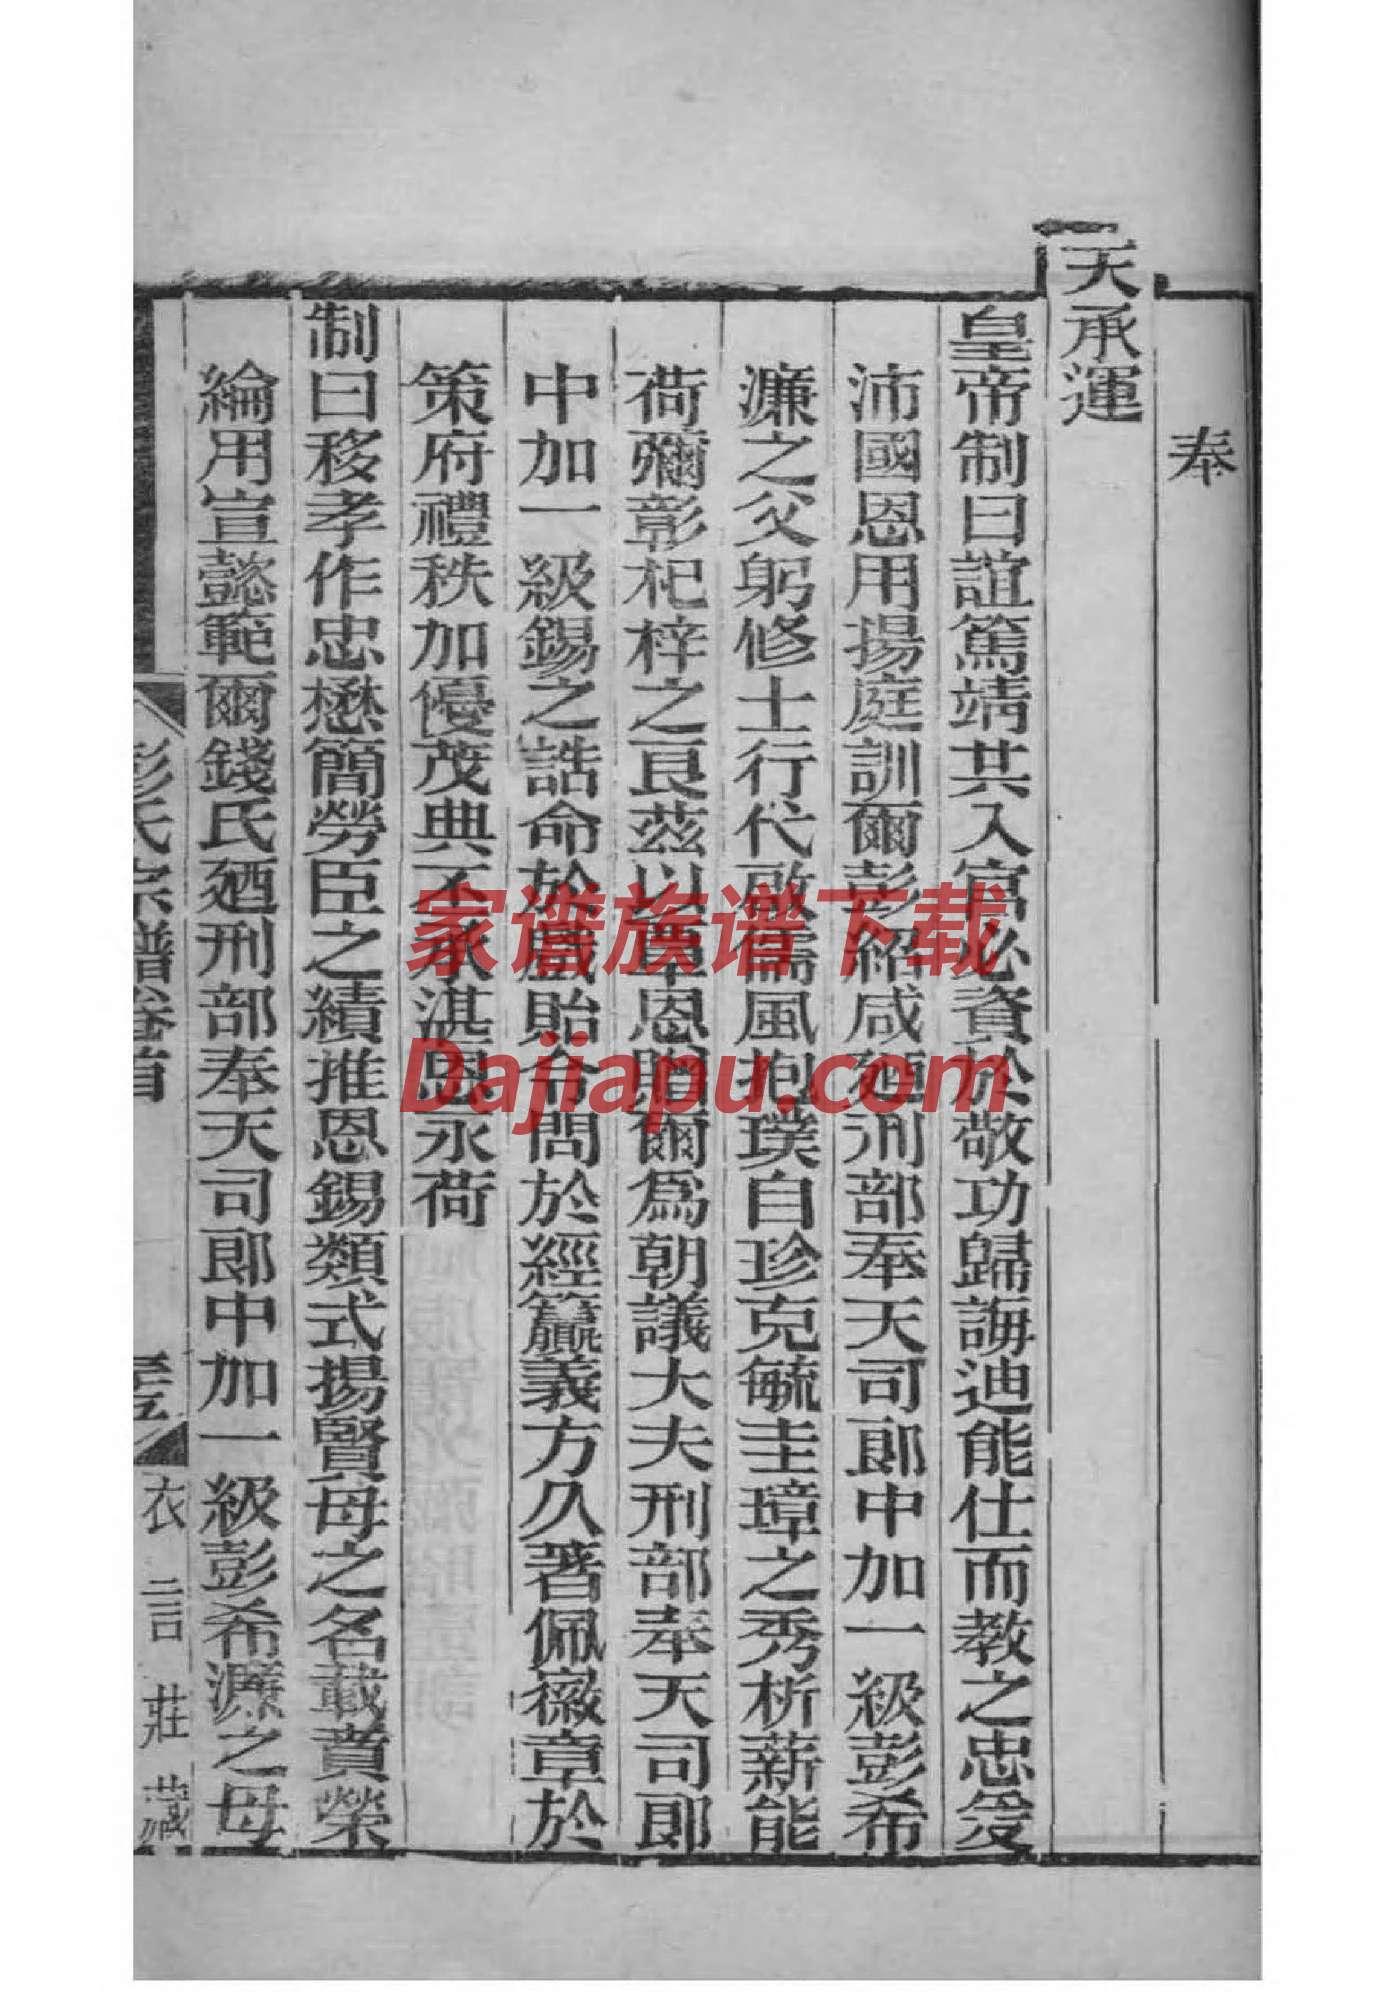 奉
天承運
皇帝制曰誼篤靖共入官必資於敬功歸誨迪能仕而教之忠爰
沛國恩用揚庭訓爾彭紹咸廼刑部奉天司郎中加一級彭希
濂之父躬修士行代啟儒風抱璞自珍克毓圭璋之秀析薪能
荷彌彰杞梓之良茲以覃恩贈爾爲朝議大夫刑部奉天司郎
中加一級錫之誥命於戲貽令問於經籯義方久著佩徽章於
策府禮秩加優茂典丕承湛恩永荷
制曰移孝作忠懋簡勞臣之績推恩錫類式揚賢母之名載賁榮
綸用宣懿範爾錢氏廼刑部奉天司郎中加一級彭希濂之母
彭氏宗譜卷首
衣言莊藏
家谱族谱下载
Dajiapu.com